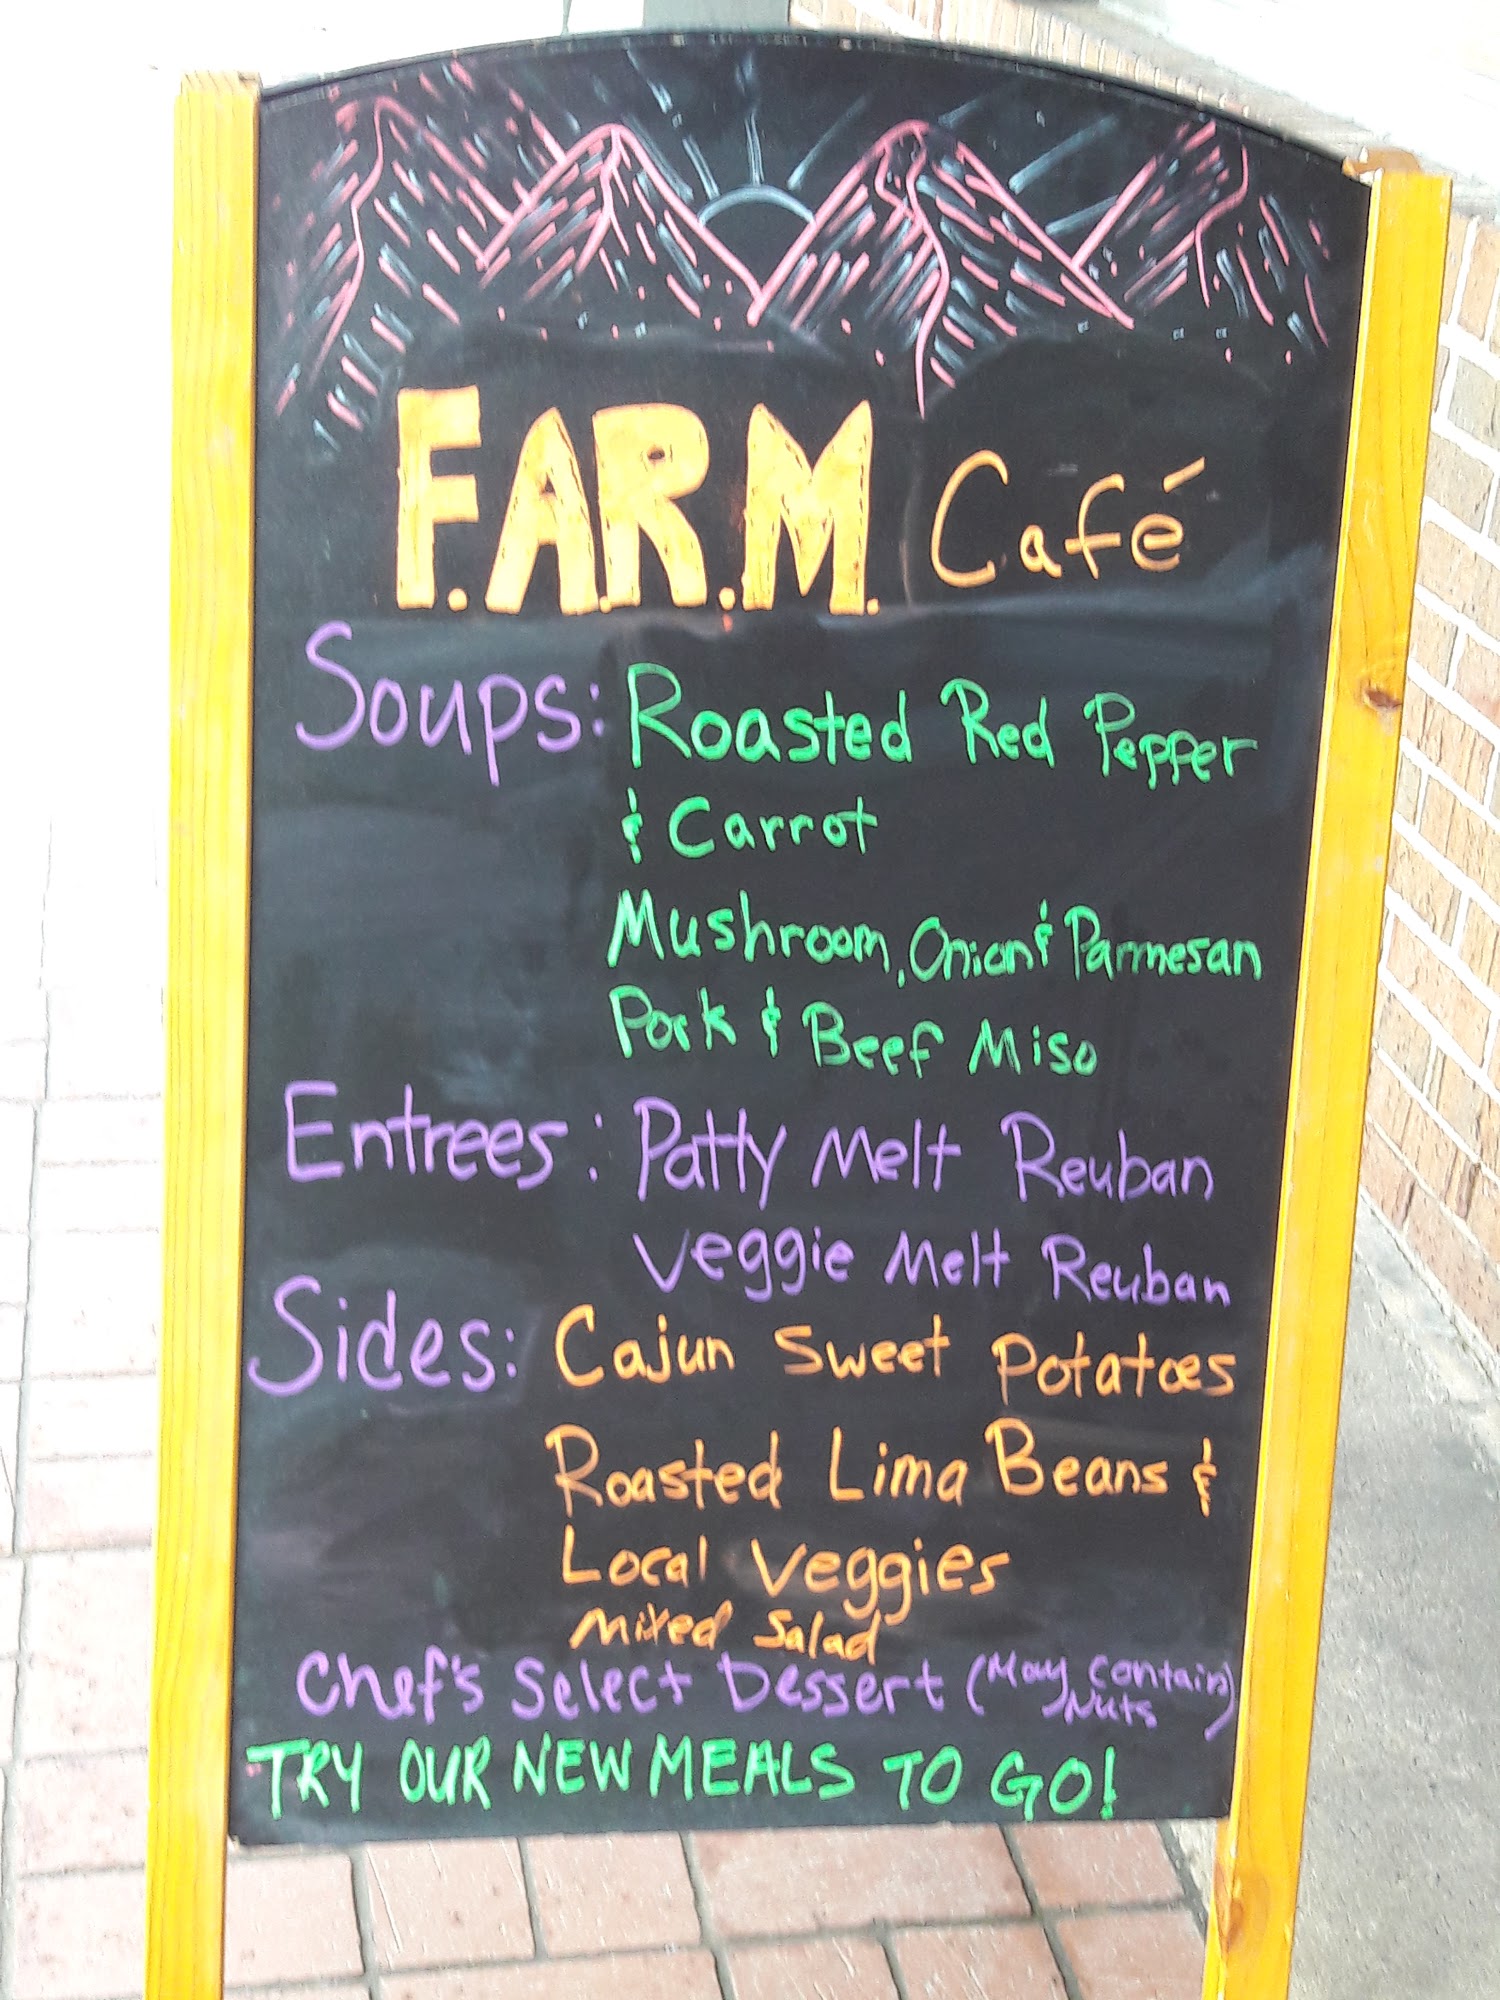 F.A.R.M. Café
Soups: Roasted Red Pepper
& Carrot
Mushroom, Onion & Parmesan
Pork & Beef Miso
Entrees: Patty Melt Reuban
Veggie Melt Reuban
Sides: Cajun Sweet Potatoes
Roasted Lima Beans &
Local Veggies
Mixed Salad
Chef's Select Dessert (May Contain
Nuts)
TRY OUR NEW MEALS TO GO!